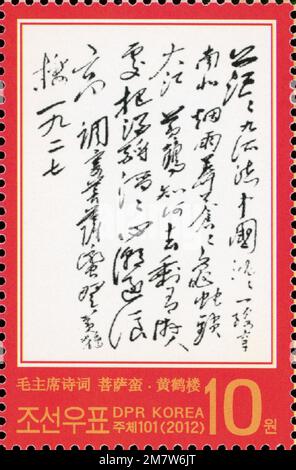 茫〻九派流中國沉〻一線穿
南北烟雨莽蒼〻龜蛇鎖
大江 黄鶴知何去剩有游人
處把酒酹滔〻心潮逐浪
高 調寄菩薩蠻登黄鶴
樓 一九二七
毛主席诗词 菩萨蛮·黄鹤楼
조선우표 DPR KOREA
주체101(2012)
10원
alamy - 2M7W6JT